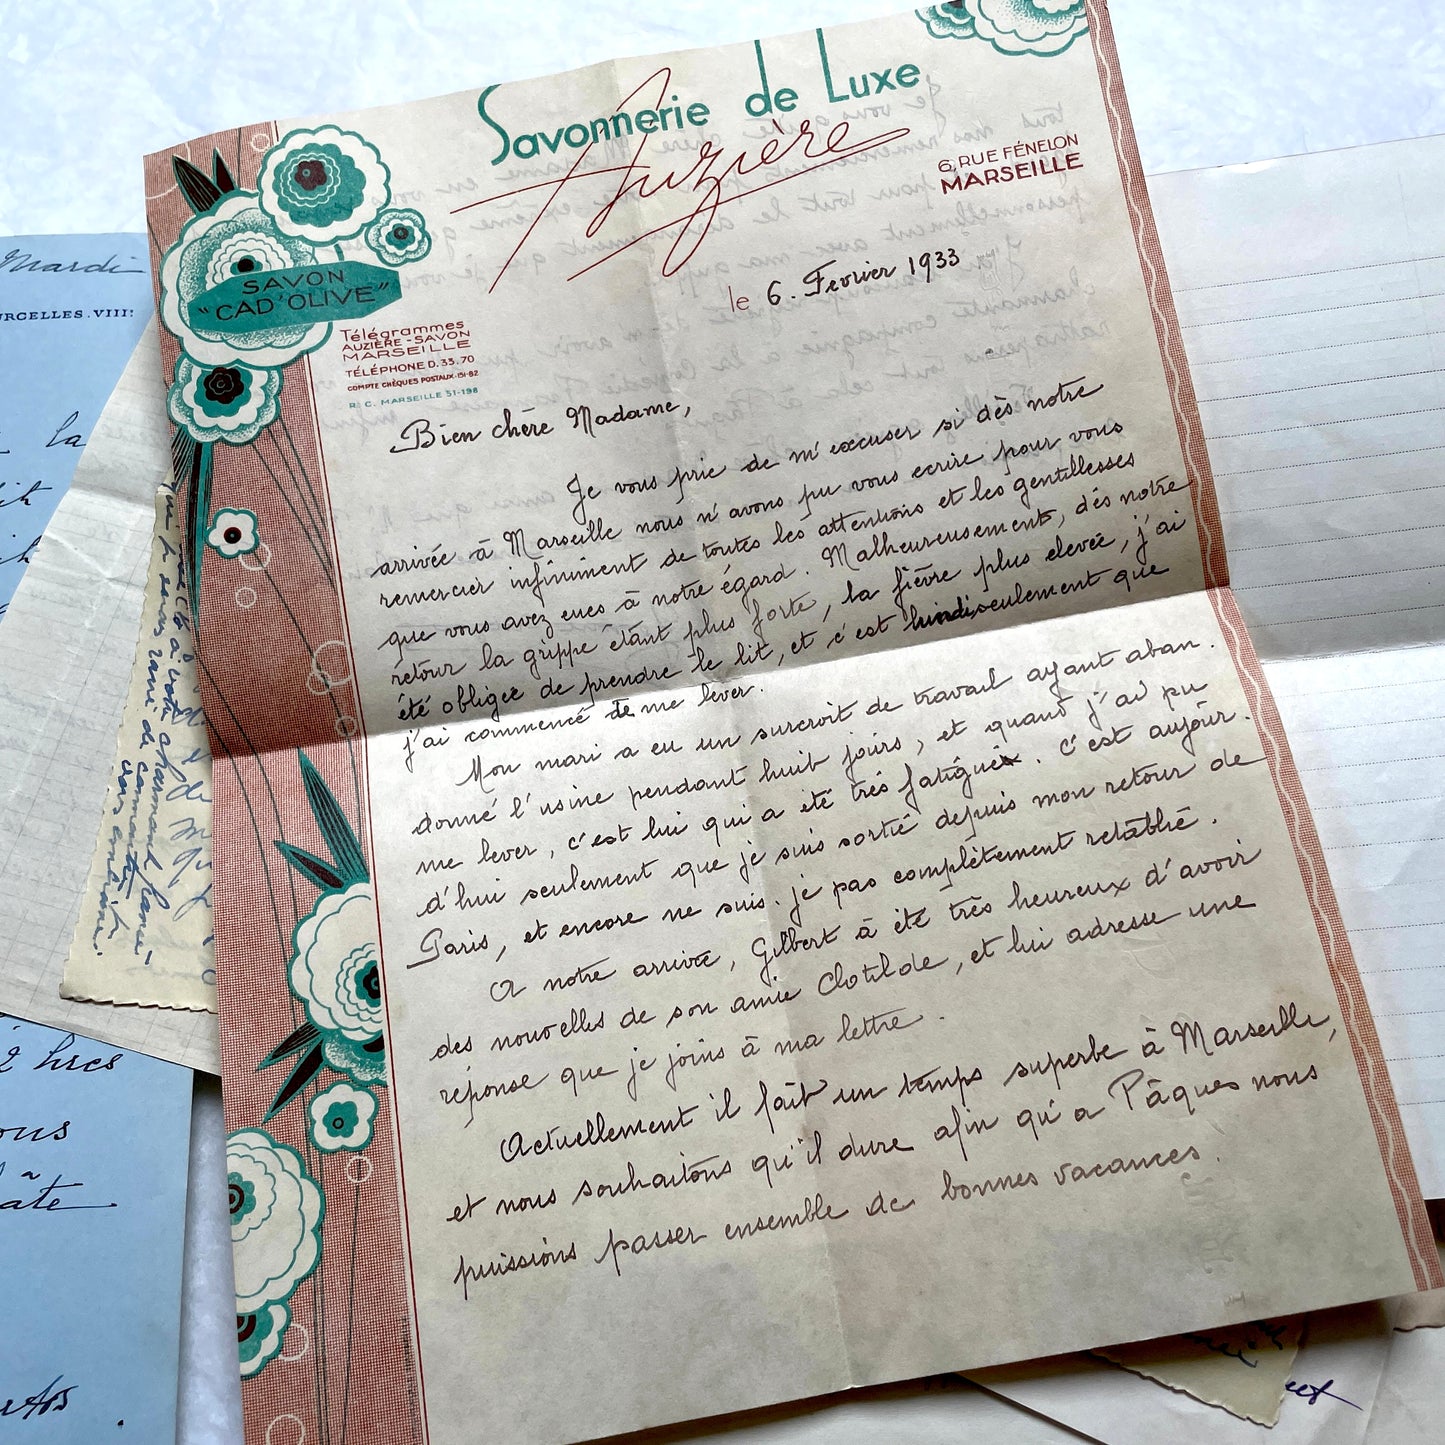 Savonnerie de Luxe
Auzière
6, RUE FÉNELON
MARSEILLE
SAVON
"CAD'OLIVE"
Télégrammes
AUZIÈRE-SAVON
MARSEILLE
TÉLÉPHONE D. 33.70
COMPTE CHÈQUES POSTAUX-151-82
R. C. MARSEILLE 51-198
le 6. Fevrier 1933
Bien chère Madame,
Je vous prie de m'excuser si dès notre
arrivée à Marseille nous n'avons pu vous ecrire pour vous
remercier infiniment de toutes les attentions et les gentillesses
que vous avez eues à notre égard. Malheureusement, dès notre
retour la grippe étant plus forte, la fièvre plus elevée, j'ai
été obligée de prendre le lit, et c'est lundi seulement que
j'ai commencé de me lever.
Mon mari a eu un surcroit de travail ayant aban.
donné l'usine pendant huit jours, et quand j'ai pu
me lever, c'est lui qui a été très fatigué. C'est aujour.
d'hui seulement que je suis sortie depuis mon retour de
Paris, et encore ne suis. je pas complètement retablie.
A notre arrivée, Gilbert à été très heureux d'avoir
des nouvelles de son amie Clotilde, et lui adresse une
réponse que je joins à ma lettre.
Actuellement il fait un temps superbe à Marseille,
et nous souhaitons qu'il dure afin qu'a Pâques nous
puissions passer ensemble de bonnes vacances.
Mardi
URCELLES.VIII
la
2 hres
ous